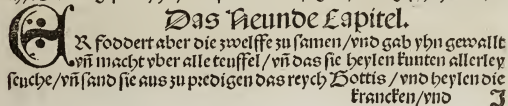 Das Neunde Capitel.
ER foddert aber die zwelffe zu samen/vnd gab yhn gewallt
vñ macht vber alle teuffel/vñ das sie heylen kunten allerley
seuche/vñ sand sie aus zu predigen das reych Gottis/vnd heylen die
krancken/vnd J